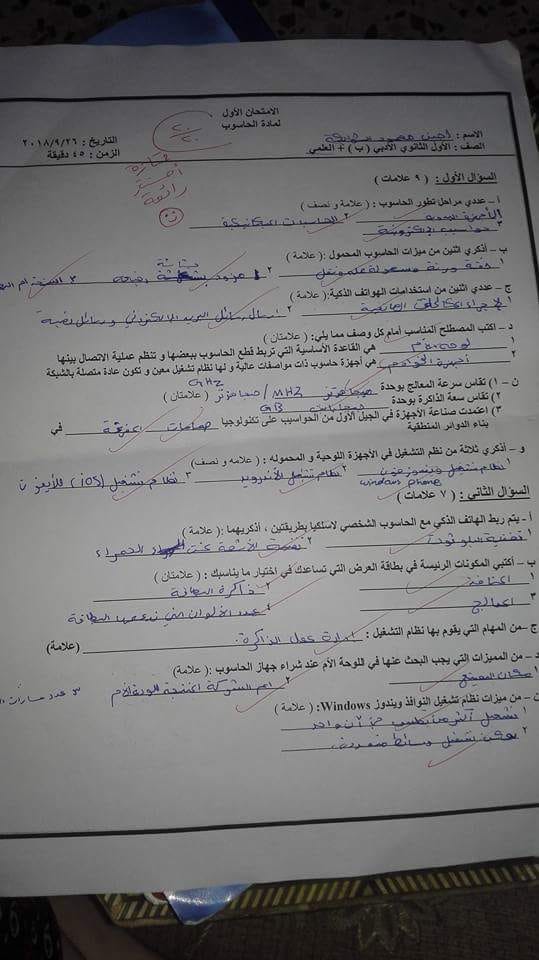 الامتحان الأول
لمادة الحاسوب
٢٠/٢٠
ممتازة
رائعة
الاسم :
التاريخ : ٢٠١٨/٩/٢٦
الصف : الأول الثانوي الأدبي ( ب ) + العلمي
الزمن : ٤٥ دقيقة
السؤال الأول : ( ٩ علامات )
أ – عددي مراحل تطور الحاسوب : ( علامة و نصف )
١ الأجهزة ٢ الحاسبات الميكانيكية
٣ حواسيب إلكترونية
ب – أذكري اثنين من ميزات الحاسوب المحمول :( علامة )
١ خفة وزنه وسهولة حمله ٢ مزود بشاشة ٣ استخدام
ج – عددي اثنين من استخدامات الهواتف الذكية:( علامة )
١ إجراء المكالمات الهاتفية ٢ ارسال رسائل البريد الإلكتروني ورسائل نصية
د – اكتب المصطلح المناسب أمام كل وصف مما يلي:( علامتان )
١ لوحة الأم هي القاعدة الأساسية التي تربط قطع الحاسوب ببعضها و تنظم عملية الاتصال بينها
٢ أجهزة الخوادم هي أجهزة حاسوب ذات مواصفات عالية و لها نظام تشغيل معين و تكون عادة متصلة بالشبكة
ن – ١) تقاس سرعة المعالج بوحدة ميجاهرتز MHZ / جيجاهرتز GHZ ( علامتان )
٢) تقاس سعة الذاكرة بوحدة جيجابايت GB
٣) اعتمدت صناعة الأجهزة في الجيل الأول من الحواسيب على تكنولوجيا صمامات المفرغة في
بناء الدوائر المنطقية
و – أذكري ثلاثة من نظم التشغيل في الأجهزة اللوحية و المحموله : ( علامه و نصف )
١ نظام تشغيل ويندوز فون windows phone ٢ نظام تشغيل الأندرويد ٣ نظام تشغيل (iOS) للآيفون
السؤال الثاني : ( ٧ علامات )
أ – يتم ربط الهاتف الذكي مع الحاسوب الشخصي لاسلكيا بطريقتين ، أذكريهما :( علامة )
١ تقنية بلوتوث ٢ تقنية الأشعة تحت الحمراء
ب – أكتبي المكونات الرئيسة في بطاقة العرض التي تساعدك في اختيار ما يناسبك : ( علامتان )
١ ٢ ذاكرة البطاقة
٣ المعالج ٤ عدد الألوان التي تدعمها البطاقة
ج – من المهام التي يقوم بها نظام التشغيل : إدارة عمل الذاكرة (علامة)
د – من المميزات التي يجب البحث عنها في اللوحة الأم عند شراء جهاز الحاسوب :( علامة )
١ مكان المصنع ٢ اسم الشركة المنتجة للوحة الأم ٣ عدد مسارات
ن – من ميزات نظام تشغيل النوافذ ويندوز Windows: ( علامة )
١ تشغيل أكثر من تطبيق في آن واحد
٢ يمكن تشغيل وسائط متعددة